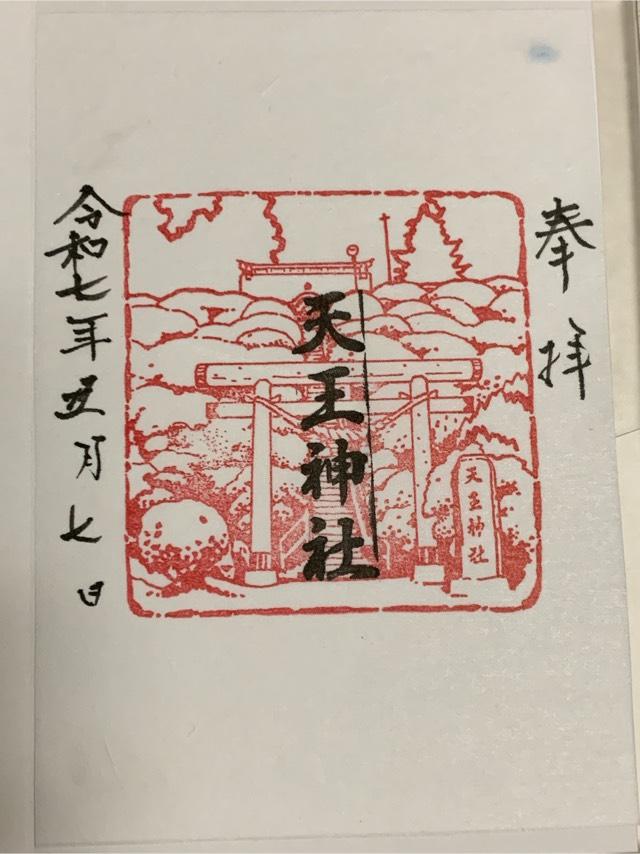 奉拝
天王神社
天王神社
令和七年五月七日